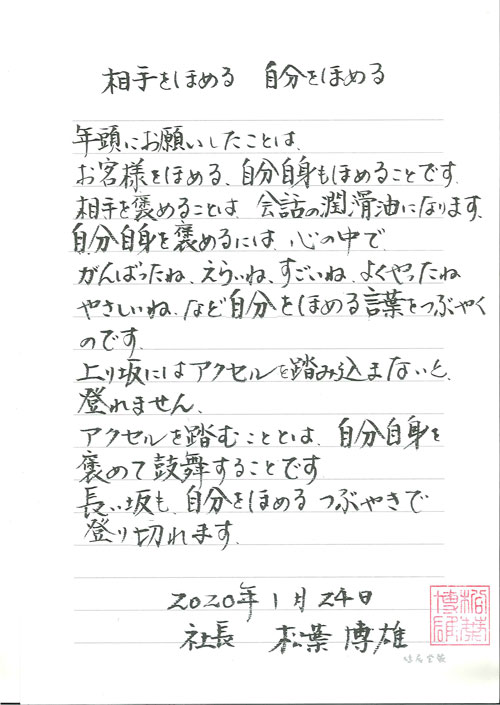 相手をほめる 自分をほめる
年頭にお願いしたことは、
お客様をほめる、自分自身もほめることです。
相手を褒めることは、会話の潤滑油になります。
自分自身を褒めるには、心の中で
がんばったね、えらいね、すごいね、よくやったね
やさしいね、など自分をほめる言葉をつぶやく
のです。
上り坂にはアクセルを踏み込まないと、
登れません。
アクセルを踏むこととは、自分自身を
褒めて鼓舞することです
長い坂も、自分をほめるつぶやきで
登り切れます。
2020年1月24日
社長 松葉博雄